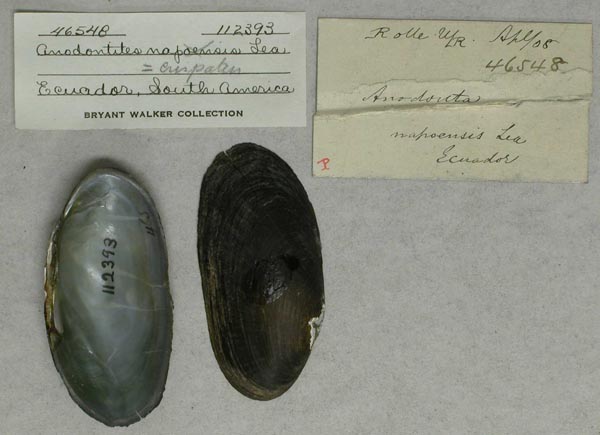 46548 112393
Anodontites napoensis Lea
=
Ecuador, South America
BRYANT WALKER COLLECTION
Rolle Apl/08
46548
Anodonta
napoensis Lea
Ecuador
112393